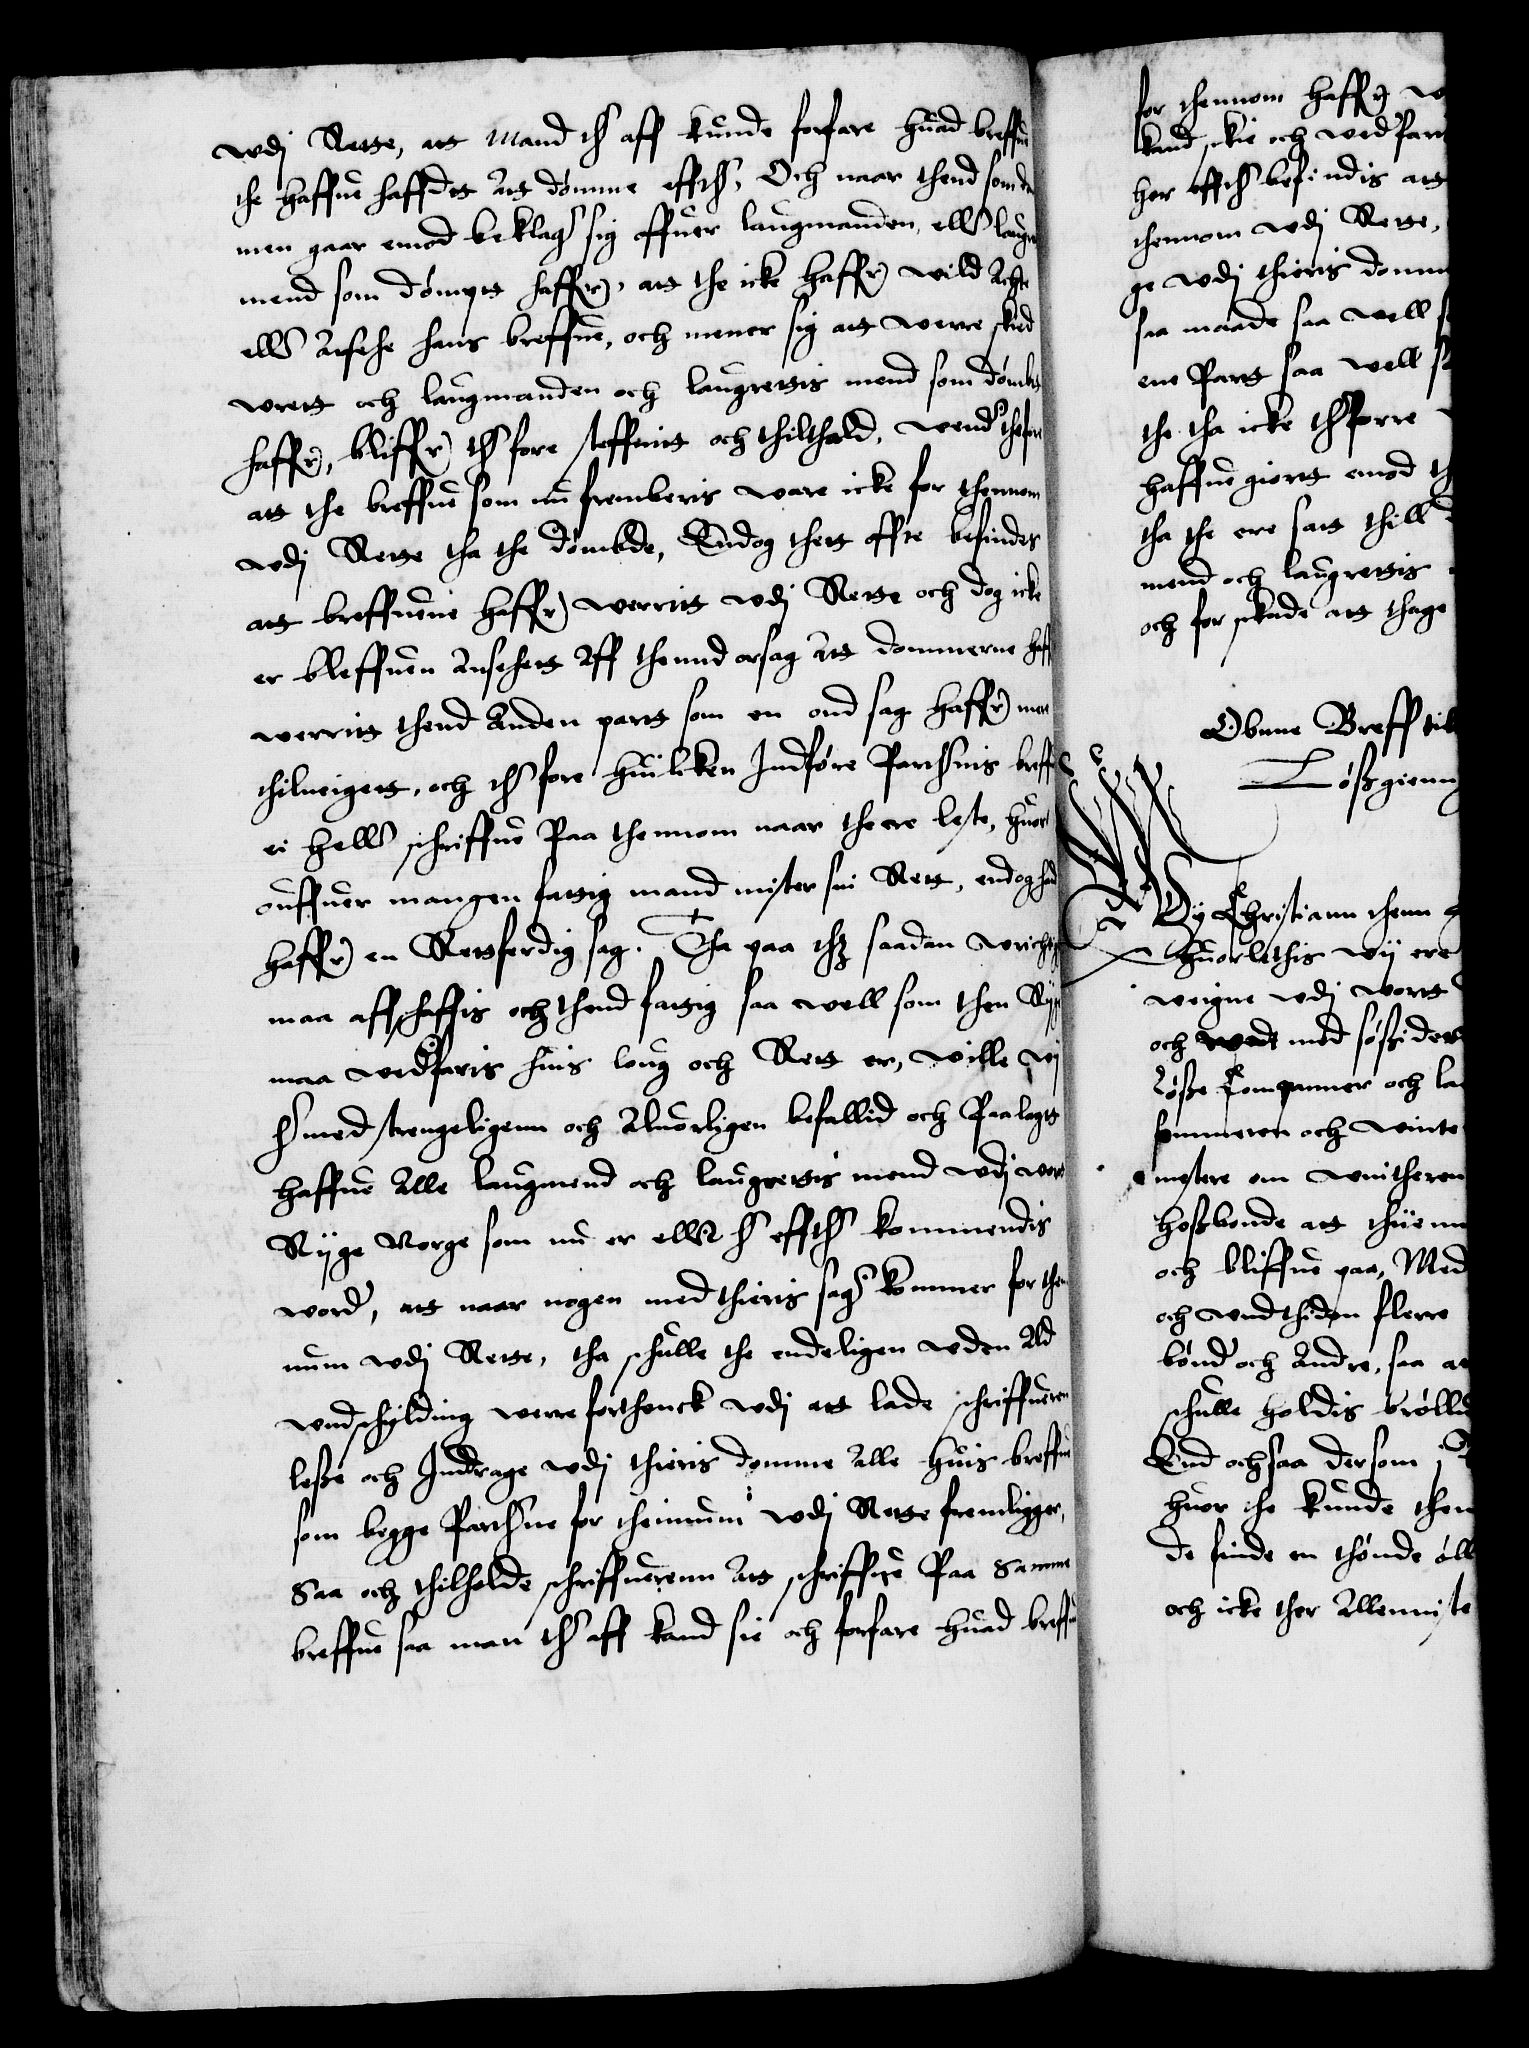 wdj Rette, att Mand ther aff kunde forfare huad breffue
the haffue haffdtt Att dømme effther, Och naar thend som do
men gaar emod beklager sig offuer laugmanden, eller laugre
mend som dømptt haffuer, att the icke haffuer wild Achte
eller Ansehe hans breffue, och mener sig att werre skied
wrett och laugmanden och laugrettis mend som dømbtt
haffuer, bliffuer ther fore steffnitt och thilthald, wender the fore
att the breffue som nu fremberis ware icke for thennom
wdj Rette tha the dømbde, Endog thett offte befindes
att breffuene haffuer werritt wdj Rette och dog icke
er bleffuen Ansehett Aff thennd orsag Att dommerne haff
werritt thend Anden partt som en ond sag haffuer mere
thilneigett, och ther fore huilcken Indføre Parthernis breffue
ei heller schriffue Paa thennom naar the ere leste, huor
ouffuer mangen fattig mand mister sin Rett, endog hand
haffuer en Rettferdig sag. Tha paa thz saadan wrichtig
maa affschaffis och thend fattig saa well som then Rige
maa wedfaris huis loug och Rett er, wille wj
her med strengeligenn och Aluorligen befallid och Paalagtt
haffue Alle laugmend och laugrettis mend wdj wortt
Riige Norge som nu er eller her effther kommendis
worder, att naar nogen med thieris sager kommer for then
num wdj Rette, tha schulle the endeligen wden Ald
wndschylding werre forthenck wdj att lade schriffueren
lesse och Inddrage wdj thieris domme Alle huis breffue
som begge Partherne for thennum wdj Rette fremligger,
Saa och thilholde schriffuerenn Att schriffue Paa Samme
breffue saa man ther aff kand sie och forfare huad breffue
for thennom haffuer
kand skie och wedfar
her effther befindis att
thennom wdj Rette,
ge wdj thieris domm
saa maade saa well s
ene Partt saa well so
the tha icke ther forre
haffue giortt emod th
tha the ere satt thill d
mend och laugrettis
och for skade att thage
Obne Breff til
Løssgienn
Wy Christiann thenn
huorlethis wy ere
weigne wdj wortt
och med løssider
Løsse Companner och la
sommeren och winte
mestere om wintheren
hossbonde att thiene
och bliffue paa, Med
och wndthiden flerre
bønder och Andre, saa at
schulle holdis brøllu
End ochsaa dersom
huor the kunde then
de finde en thønde øll
och icke ther Allenniste